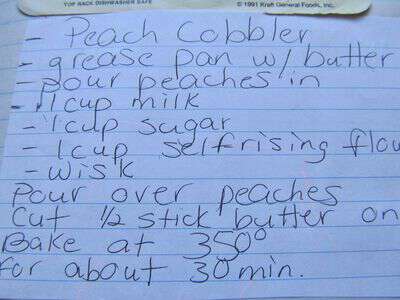 TOP RACK DISHWASHER SAFE © 1991 Kraft General Foods, Inc.
- Peach Cobbler
- grease pan w/ butter
- pour peaches in
- 1 cup milk
- 1 cup sugar
- 1 cup selfrising flou
- wisk
Pour over peaches
Cut 1/2 stick butter on
Bake at 350°
for about 30 min.